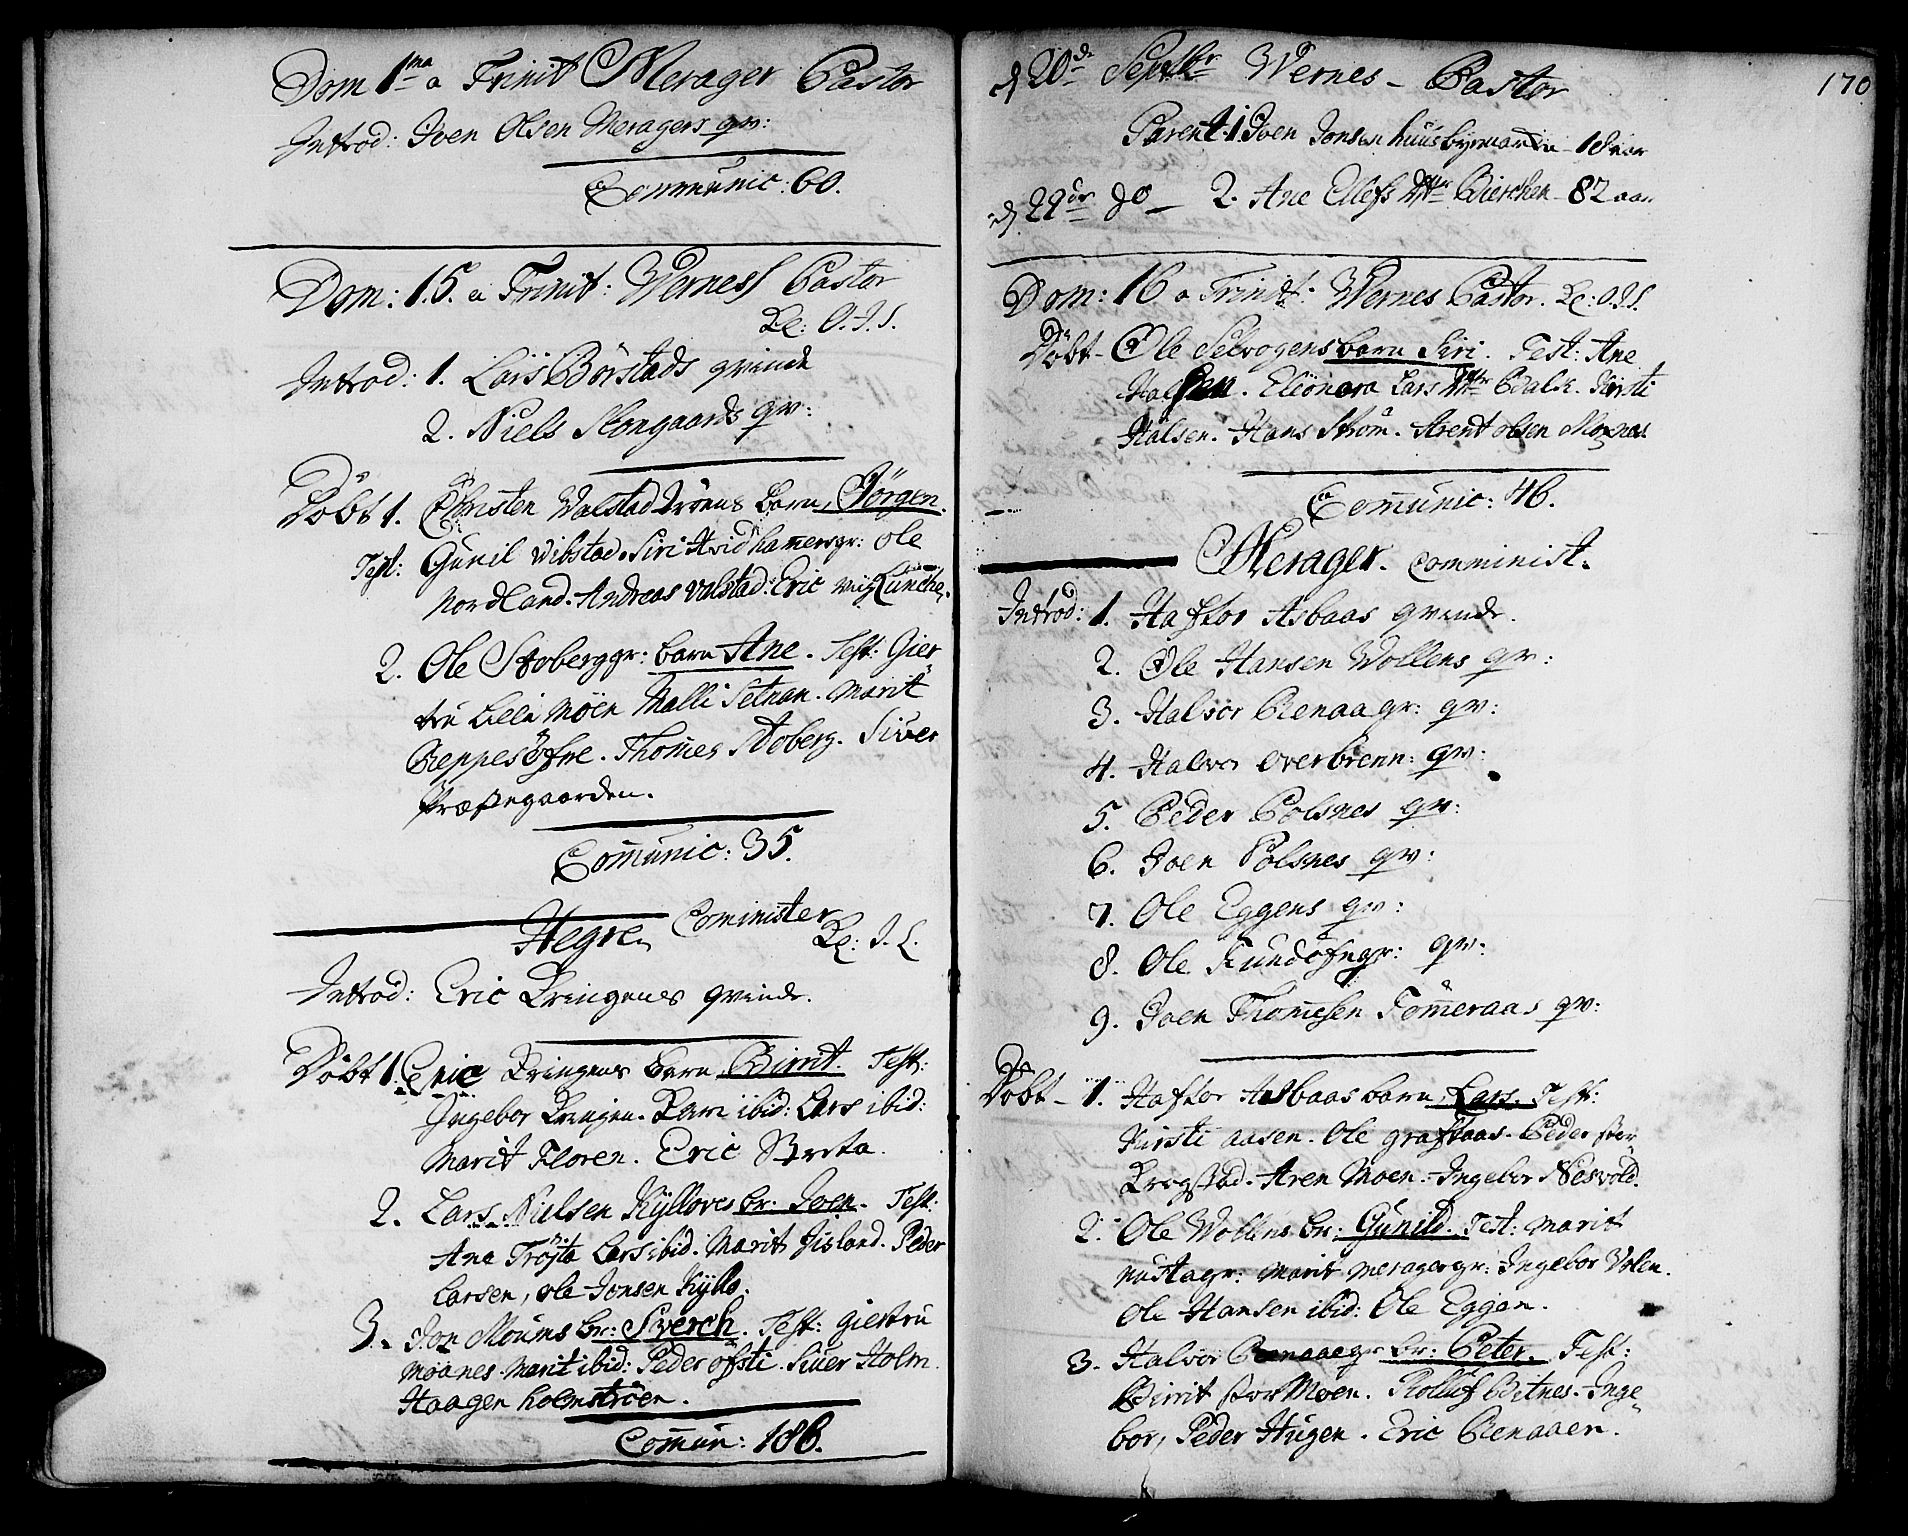 Dom 1ma a Trinit Merager Pastor
Introd: Iven Olsen Meragers qv:
Communic: 60.
Dom: 15. a Trinit: Werness Pastor
Kl: O. I. S.
Introd: 1. Lars Børstads qvinde
2. Niels Skongaards qv:
Døbt 1. Christen Valstad barn Jørgen.
Test: Gunil Vibstad. Siri Hvidhamersgr: Ole
Nordland. Andreas Valstad. Eric
2. Ole Stoberggr: barn Ane. Test: Gier
tru Lille Möen Malli Setnan. Marit
Reppesöfre. Thomes Stoberg. Siver
Præstegaarden.
Comunic: 35.
Hegre Cominister
Kl: I. L.
Introd: Eric Kringens qvinde.
Döbt 1. Eric Kringens barn Birrit. Test:
Ingebor Kringen. Kari ibid: Lars ibid:
Marit Floren. Eric
2. Lars Nielsen Kylloves br: Joen. Test:
Ane Tröjta Lars ibid. Marit Jisland. Peder
Larsen, ole Jonsen Kyllo.
3. Jon Moums br: Sverch. Test: giertru
Moanes. Marit ibid: Peder ofsti. Siver Holm.
Haagen holmströen.
Comun: 186.
170
d 20de Septbr Wernes - Pastor
Parent. 1 Joen Jonsen 18 aar
d 22de do - 2. Ane Ellefs dtr Bierchen 82 aar
Dom: 16 a Trinit: Wernes Pastor. Kl: O. I. S.
Döbt - Ole Selvogens barn Siri. Test: Ane
Halsen. Eleonora Lars dtr Kirsti
Halsen. Hans Ström. Arent olsen Moxnes.
Comunic: 46.
Merager. Comminist.
Introd: 1. Haftor Asbaas qvinde.
2. Ole Hansen Wollens qv:
3. Halvor Renaagr: qv:
4. Halvor Overbrenn: qv:
5. Peder Polsnes qv:
6. Joen Polsnes qv:
7. Ole Eggens qv:
8. Ole Fundöfngr: qv:
9. Joen Thomesen Fömeraas qv:
Döbt - 1. Haftor Asbaas barn Lars. Test:
Kirsti aasen. Ole graftaas. Peder stor
Krogstad. Aren Moen. Ingebor Nesvold.
2. Ole Wollens br: Gunild. Test: Marit
Nustagr: Marit meragergr: Ingebor Volen.
Ole Hansen ibid: Ole Eggen.
3. Halvor Renaaegr br: Peter. Test:
Birrit stor Moen. Rolluf Bitnes. Inge
bor, Peder Hugen. Eric Renaaen.